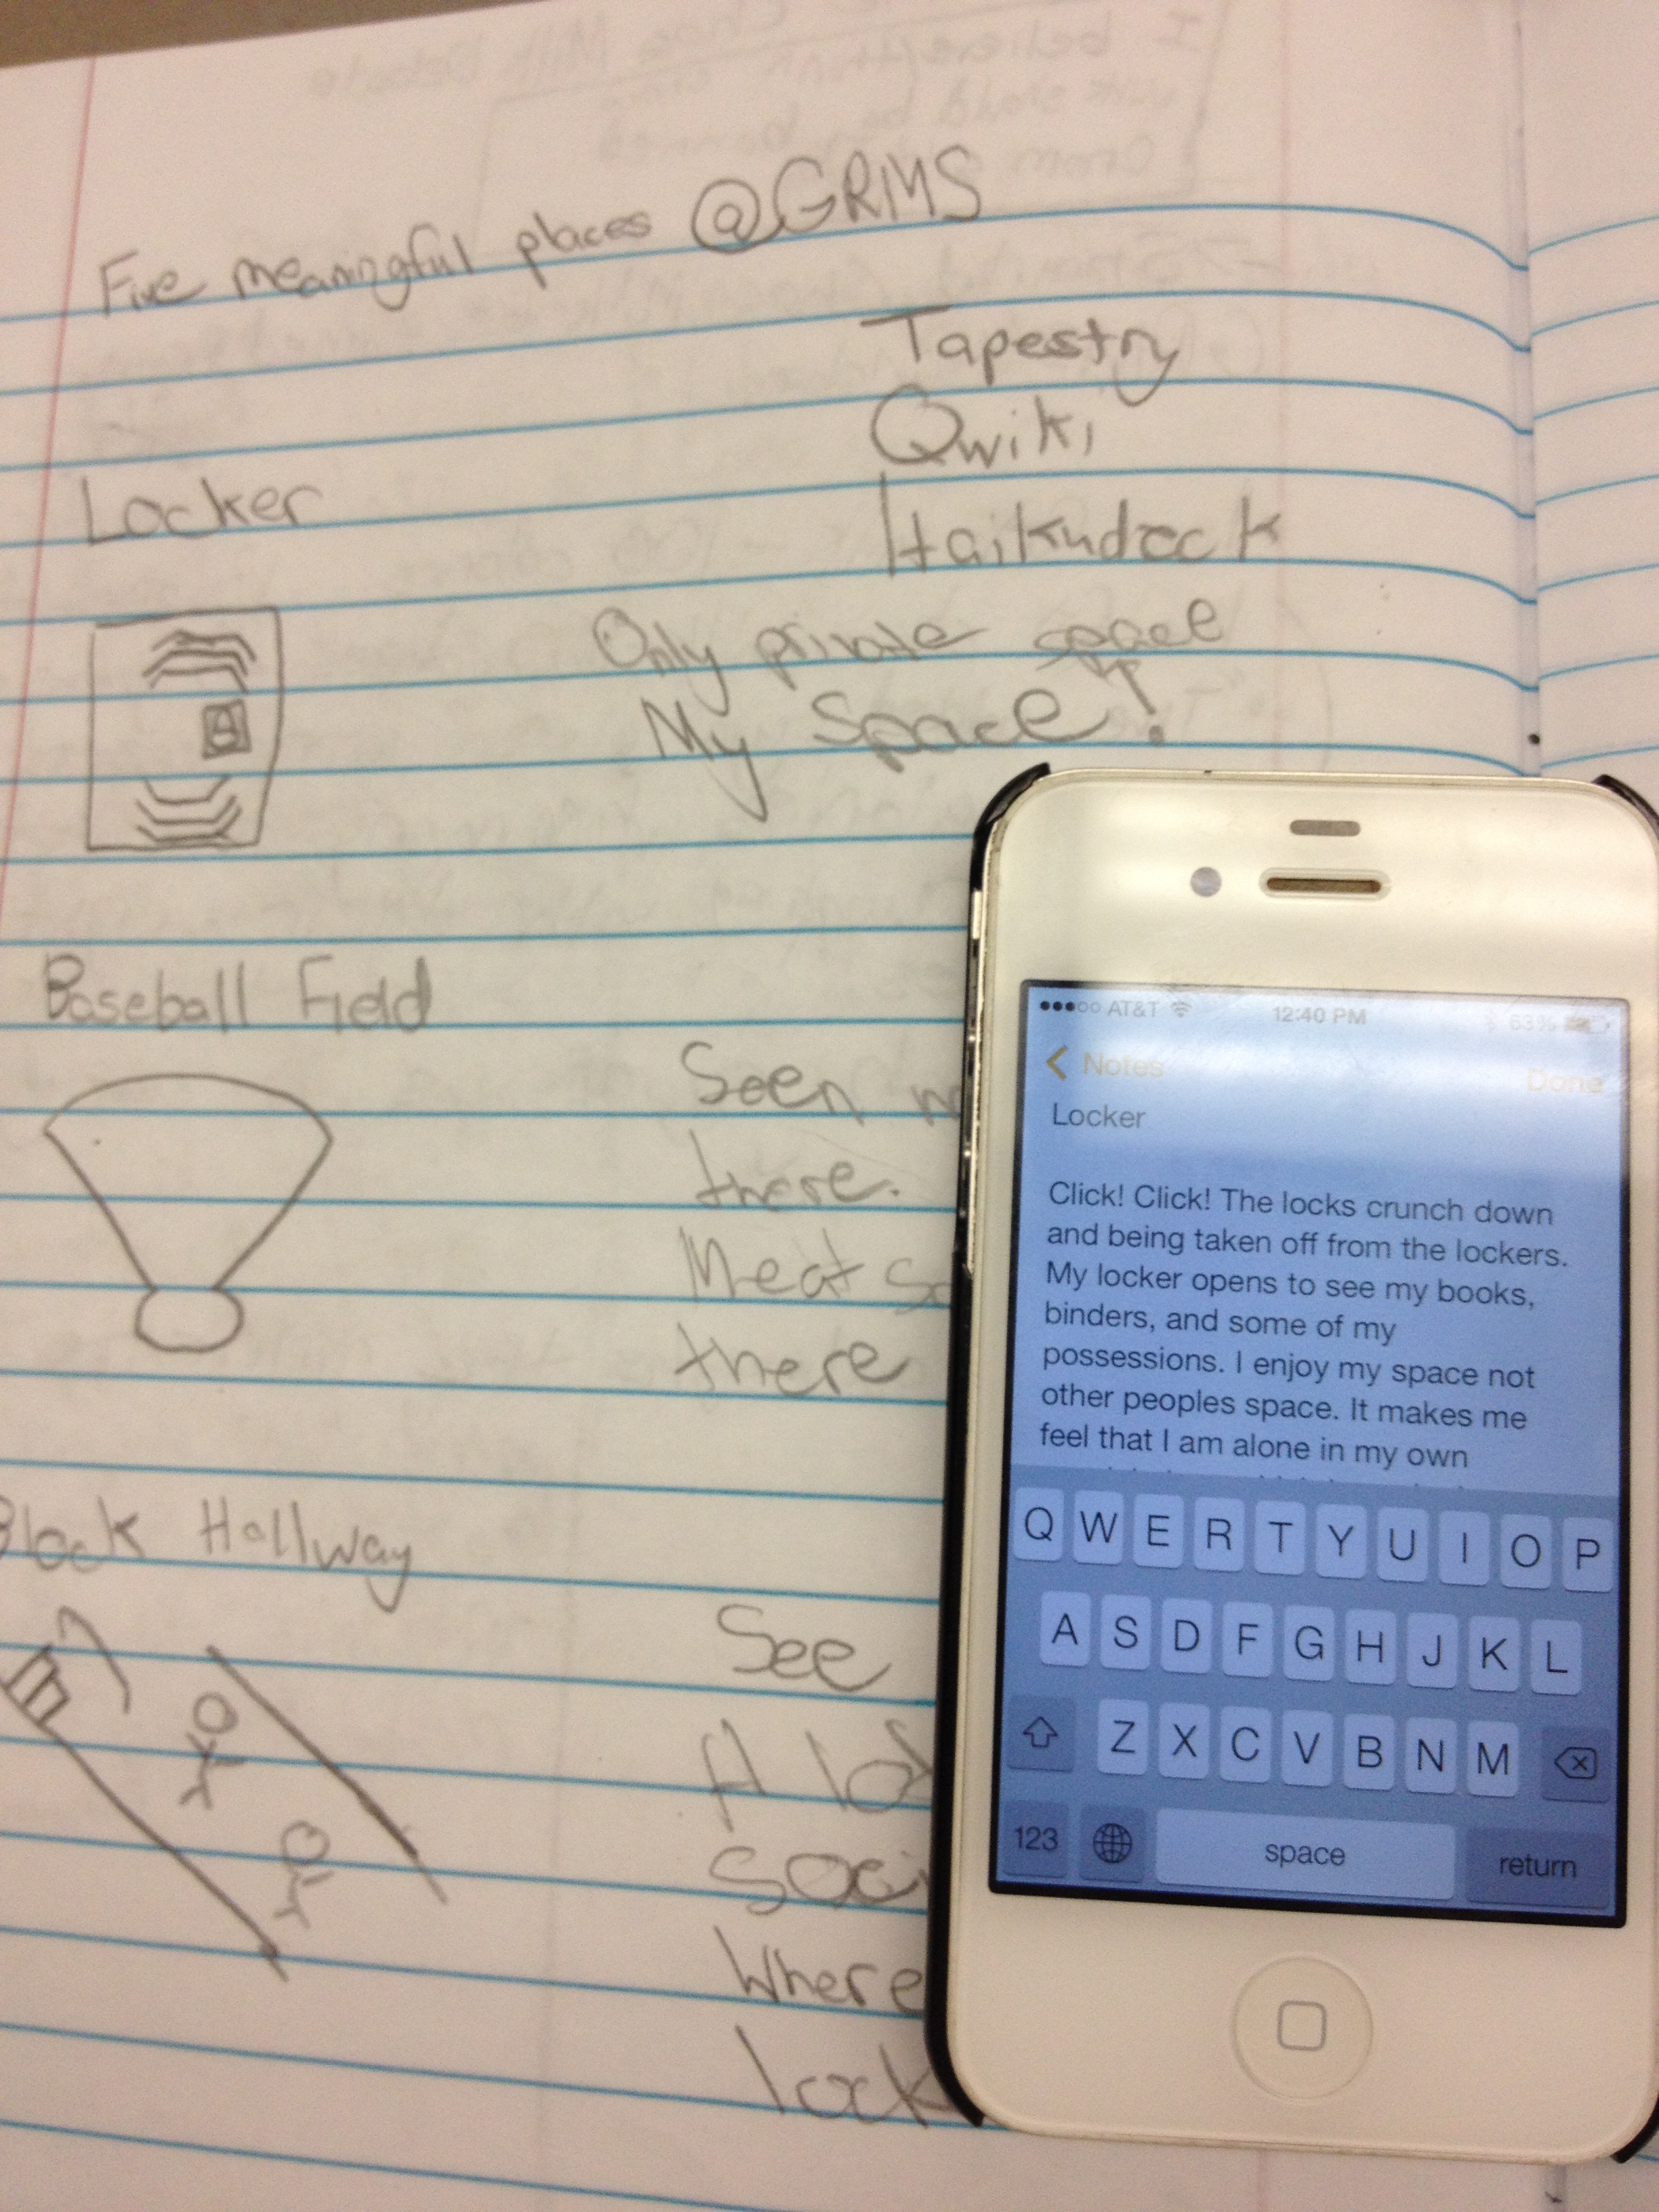 Five meaningful places @GRMS
Tapestry
Qwiki
Haikudeck
Locker
Only private space
My Space!
Baseball Field
Seen
there.
Meat
there
Block Hallway
See
A lot
Where
lock
AT&T 12:40 PM 63%
Notes Done
Locker
Click! Click! The locks crunch down
and being taken off from the lockers.
My locker opens to see my books,
binders, and some of my
possessions. I enjoy my space not
other peoples space. It makes me
feel that I am alone in my own
Q W E R T Y U I O P
A S D F G H J K L
Z X C V B N M
123 space return